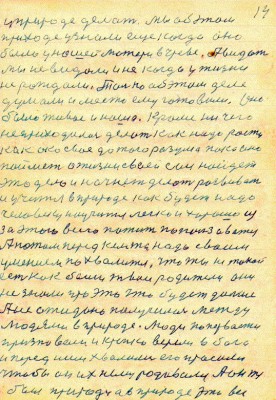 14
в природе делат. мы об этом
приходе узнали еще когда оно
было у нашей матери в чреве. А видат
мы не видали и не когда у жизни
не рождали. Только об этом деле
думали и место ему готовили. Оно
было живое и наше. Кроме ничего
не приходилос делат как надо рости
как оно свое до того разума пока оно
поймет о жизни своей сам найдет
это дело и начнет делат развиват
и учится в природе как будет надо
человеку научится легко и хорошо и
за этого всего потом
А потом перед кем та надо своим
умением похвалится, что ты не такой
есть как были твои родители они
не знали про это что будет далше
А не ожидано получилос между
людями в природе. Люди
признавали и крепко верили в бога
и перед ним хвалили его просили
чтобы он их
был природу а в природе это все